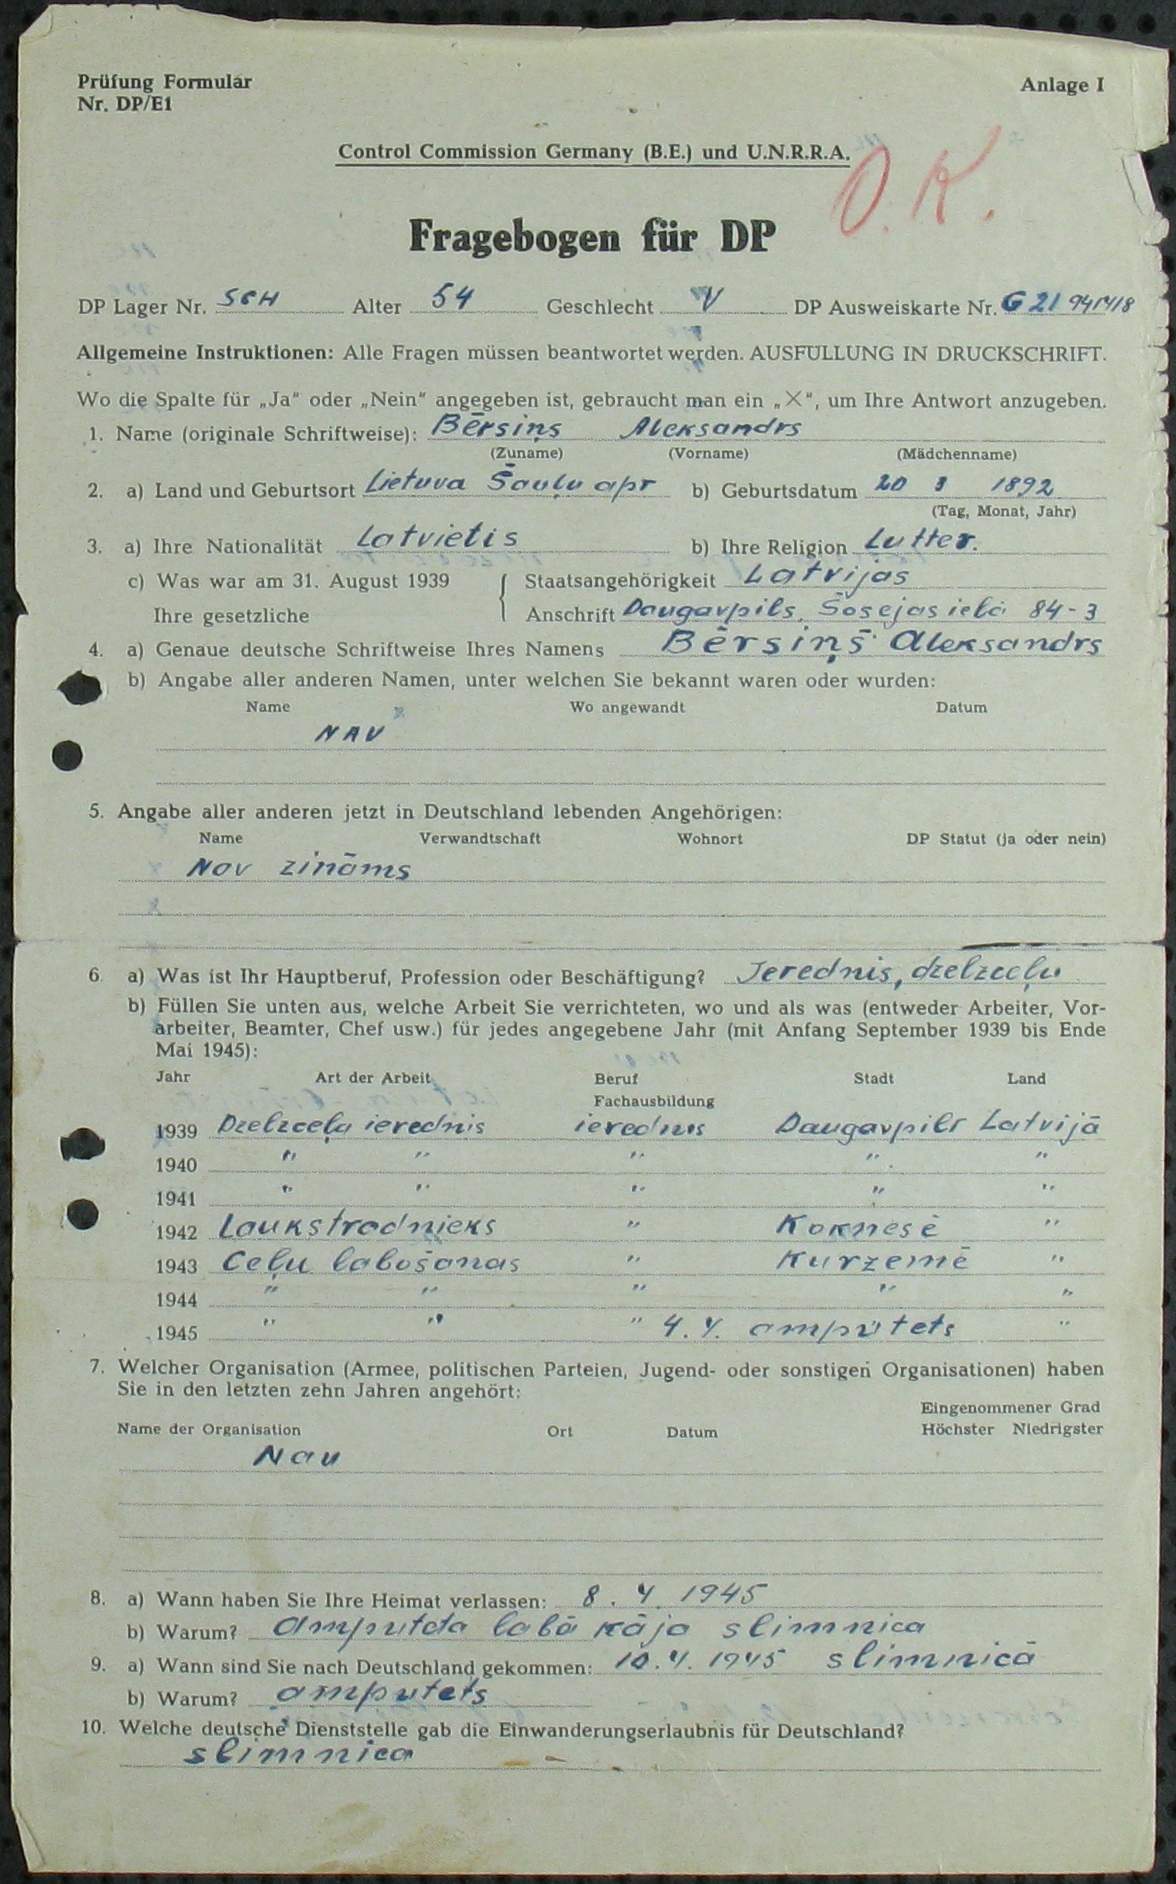 Prüfung Formular Anlage I
Nr. DP/E1
Control Commission Germany (B.E.) und U.N.R.R.A.
O. K.
Fragebogen für DP
DP Lager Nr. SCH Alter 54 Geschlecht V DP Ausweiskarte Nr. G 21 941418
Allgemeine Instruktionen: Alle Fragen müssen beantwortet werden. AUSFÜLLUNG IN DRUCKSCHRIFT.
Wo die Spalte für „Ja“ oder „Nein“ angegeben ist, gebraucht man ein „×“, um Ihre Antwort anzugeben.
1. Name (originale Schriftweise): Bērsiņs Aleksandrs
(Zuname) (Vorname) (Mädchenname)
2. a) Land und Geburtsort Lietuva Šauļu apr b) Geburtsdatum 20 8 1892
(Tag, Monat, Jahr)
3. a) Ihre Nationalität Latvietis b) Ihre Religion Lutter.
c) Was war am 31. August 1939 { Staatsangehörigkeit Latvijas
Ihre gesetzliche Anschrift Daugavpils, Šosejas ielā 84-3
4. a) Genaue deutsche Schriftweise Ihres Namens Bērsiņš Aleksandrs
b) Angabe aller anderen Namen, unter welchen Sie bekannt waren oder wurden:
Name Wo angewandt Datum
NAV
5. Angabe aller anderen jetzt in Deutschland lebenden Angehörigen:
Name Verwandtschaft Wohnort DP Statut (ja oder nein)
Nav zināms
6. a) Was ist Ihr Hauptberuf, Profession oder Beschäftigung? Ierednis, dzelzceļu
b) Füllen Sie unten aus, welche Arbeit Sie verrichteten, wo und als was (entweder Arbeiter, Vor-
arbeiter, Beamter, Chef usw.) für jedes angegebene Jahr (mit Anfang September 1939 bis Ende
Mai 1945):
Jahr Art der Arbeit Beruf Stadt Land
Fachausbildung
1939 Dzelzceļu ierednis ierednis Daugavpils Latvijā
1940 " " " " "
1941 " " " " "
1942 Laukstradnieks " Koknesē "
1943 Ceļu labošanas " Kurzemē "
1944 " " " " "
1945 " " " 4. 4. amputets "
7. Welcher Organisation (Armee, politischen Parteien, Jugend- oder sonstigen Organisationen) haben
Sie in den letzten zehn Jahren angehört:
Eingenommener Grad
Name der Organisation Ort Datum Höchster Niedrigster
Nav
8. a) Wann haben Sie Ihre Heimat verlassen: 8. 4. 1945
b) Warum? amputeta labā kāja slimnica
9. a) Wann sind Sie nach Deutschland gekommen: 10. 4. 1945 slimnicā
b) Warum? amputets
10. Welche deutsche Dienststelle gab die Einwanderungserlaubnis für Deutschland?
slimnica